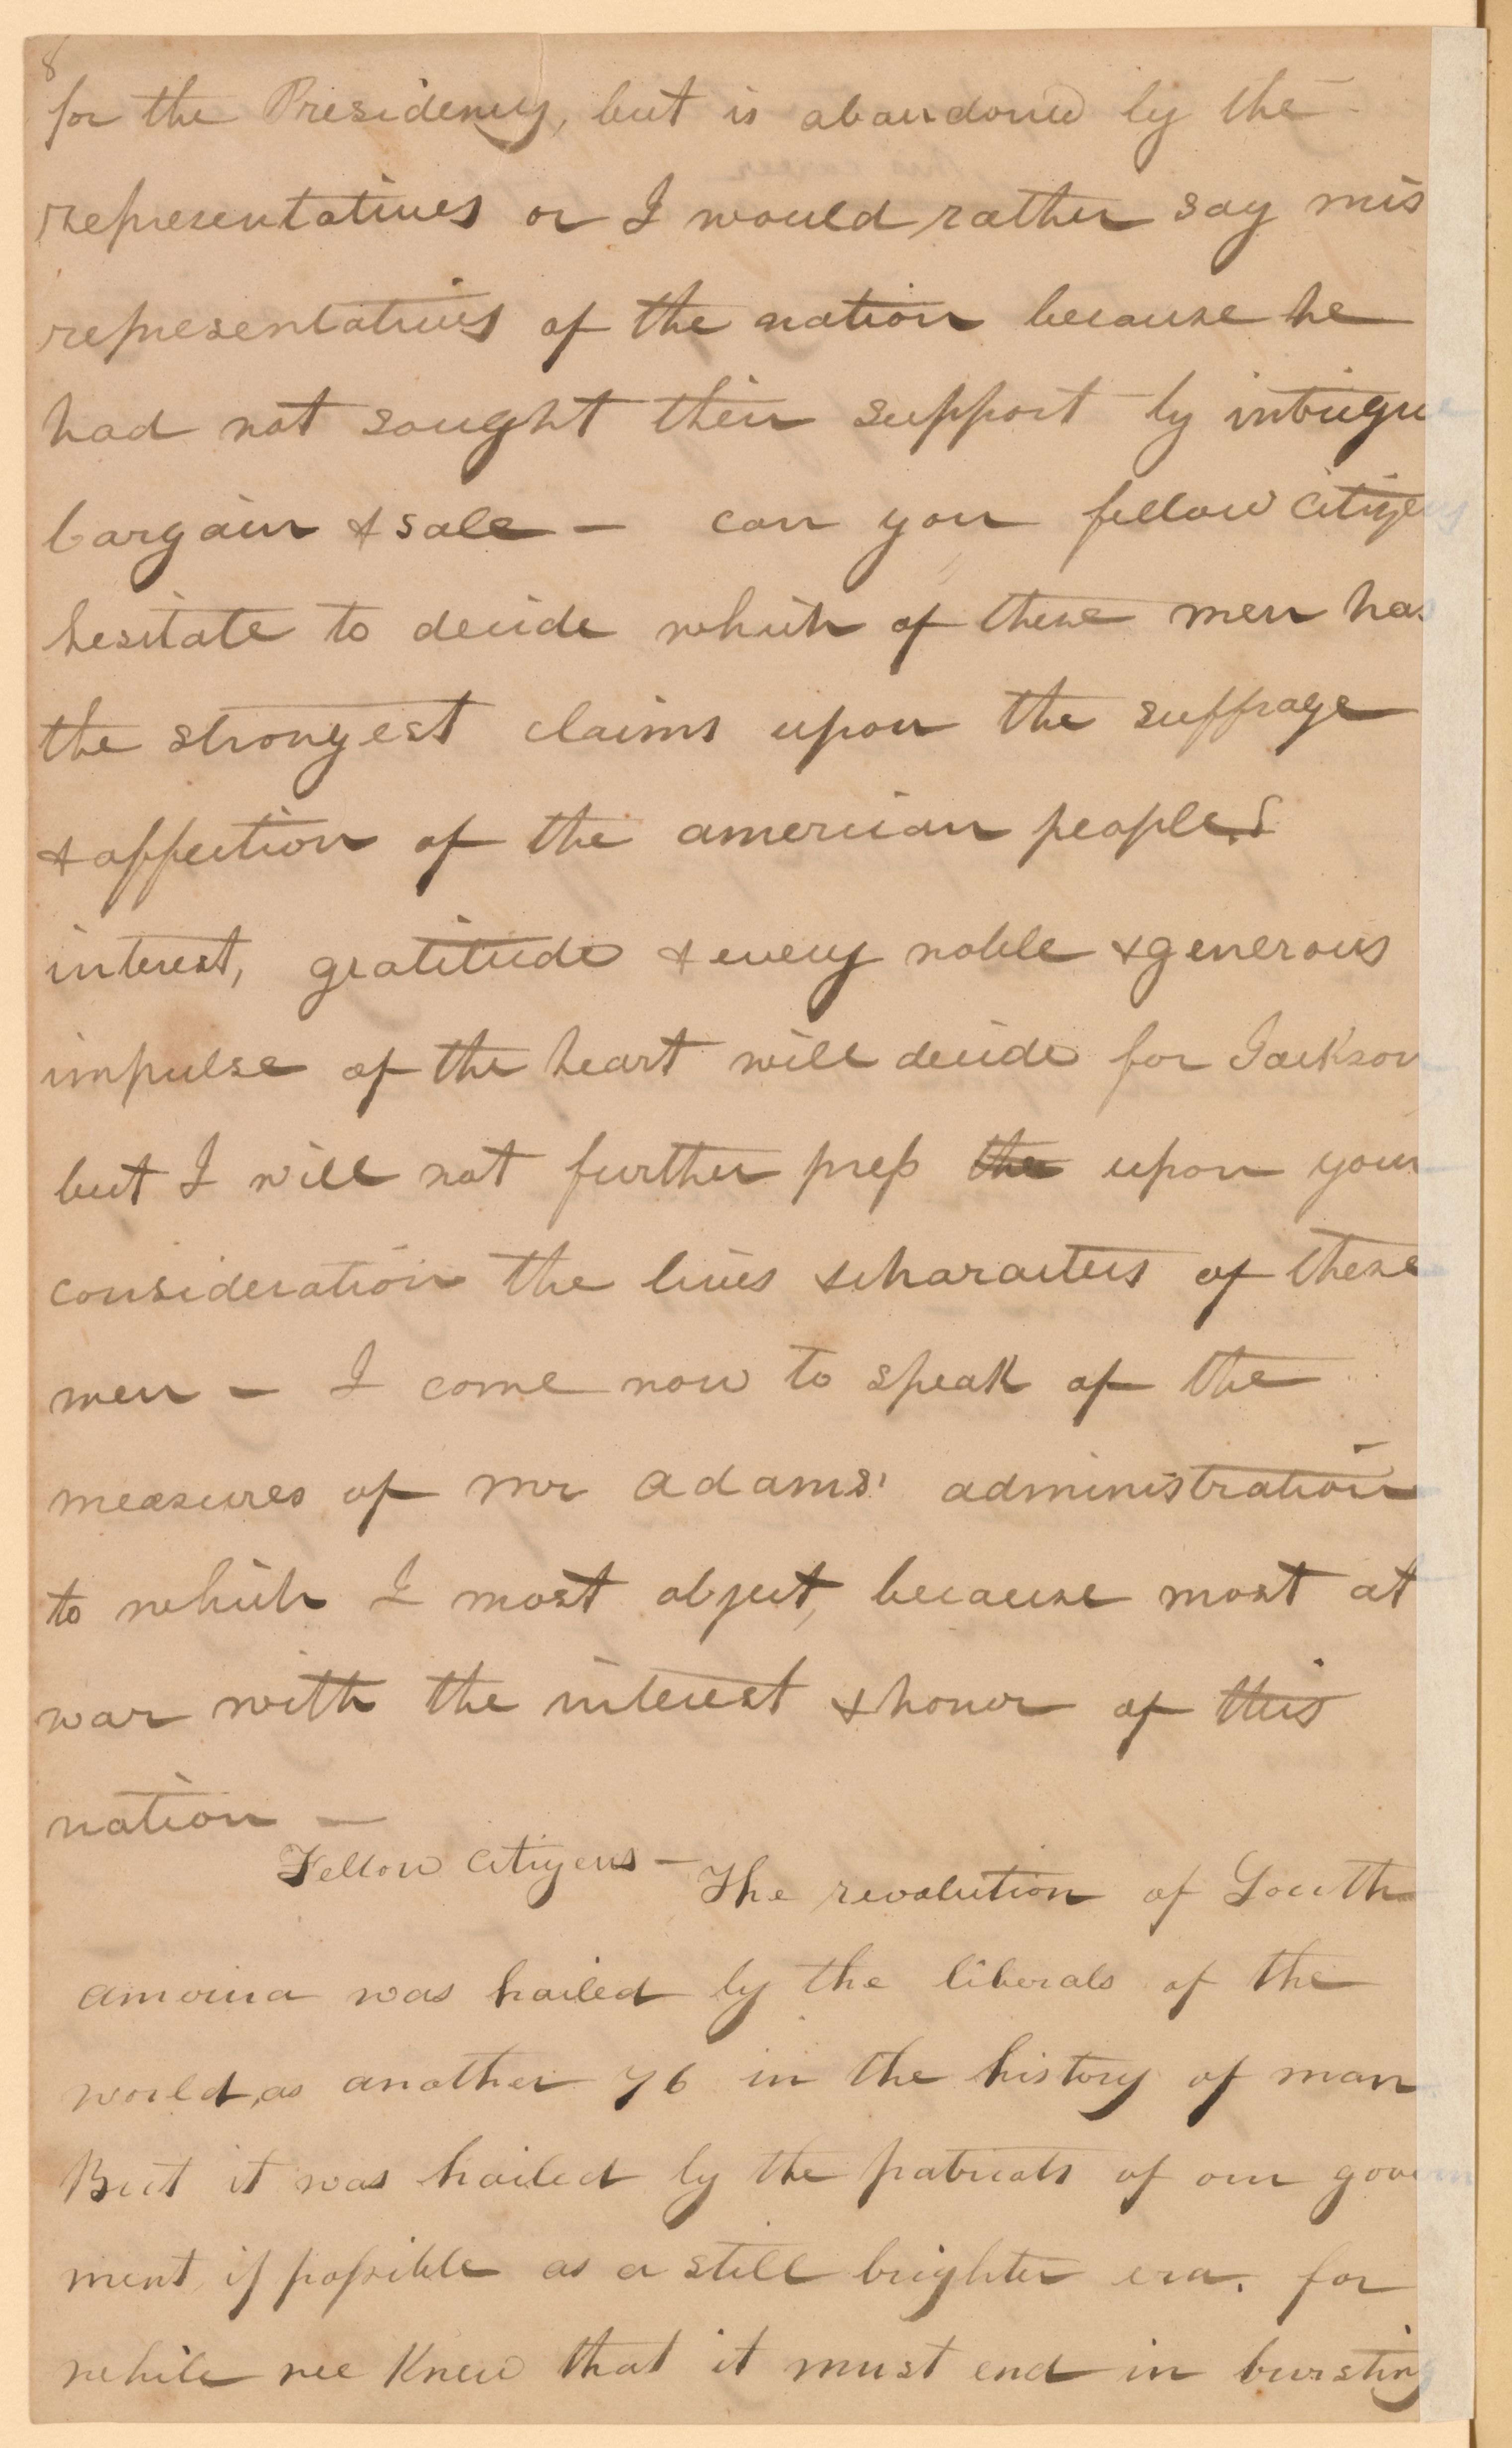 8
for the Presidency, but is abandoned by the
representatives or I would rather say mis
representatives of the nation because he
had not sought their support by intrigue
bargain & sale – can you fellow citizens
hesitate to decide which of these men has
the strongest claims upon the suffrage
& affection of the american people?
interest, gratitude & every noble & generous
impulse of the heart will decide for Jackson
but I will not further press the upon your
consideration the lives & characters of these
men – I come now to speak of the
measures of mr adams' administration
to which I most object, because most at
war with the interest & honor of this
nation —
Fellow citizens – The revolution of South
america was hailed by the liberals of the
world, as another 76 in the history of man
But it was hailed by the patriots of our govern
ment, if possible as a still brighter era. for
while we knew that it must end in bursting